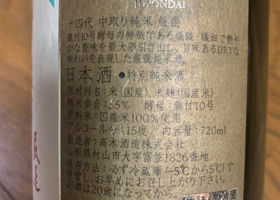 JUYONDAI
十四代 中取り純米 無濾過
蔵付10号酵母の特徴である
かな香味を最大限引き出し、旨味あるDRYな
味わいを表現した厳選純米酒。
日本酒 ●特別純米酒
原材料名：米(国産)、米麹(国産米)
精米歩合：55% 酵母：蔵付10号
原料米：国産米100%使用
アルコール分：15度 内容量：720ml
製造者：高木酒造株式会社
山形県村山市大字富並1826番地
保存方法：必ず冷蔵庫(-5℃から5℃)で
お早めにお召し上がり下さい。
お酒は20歳になってから。